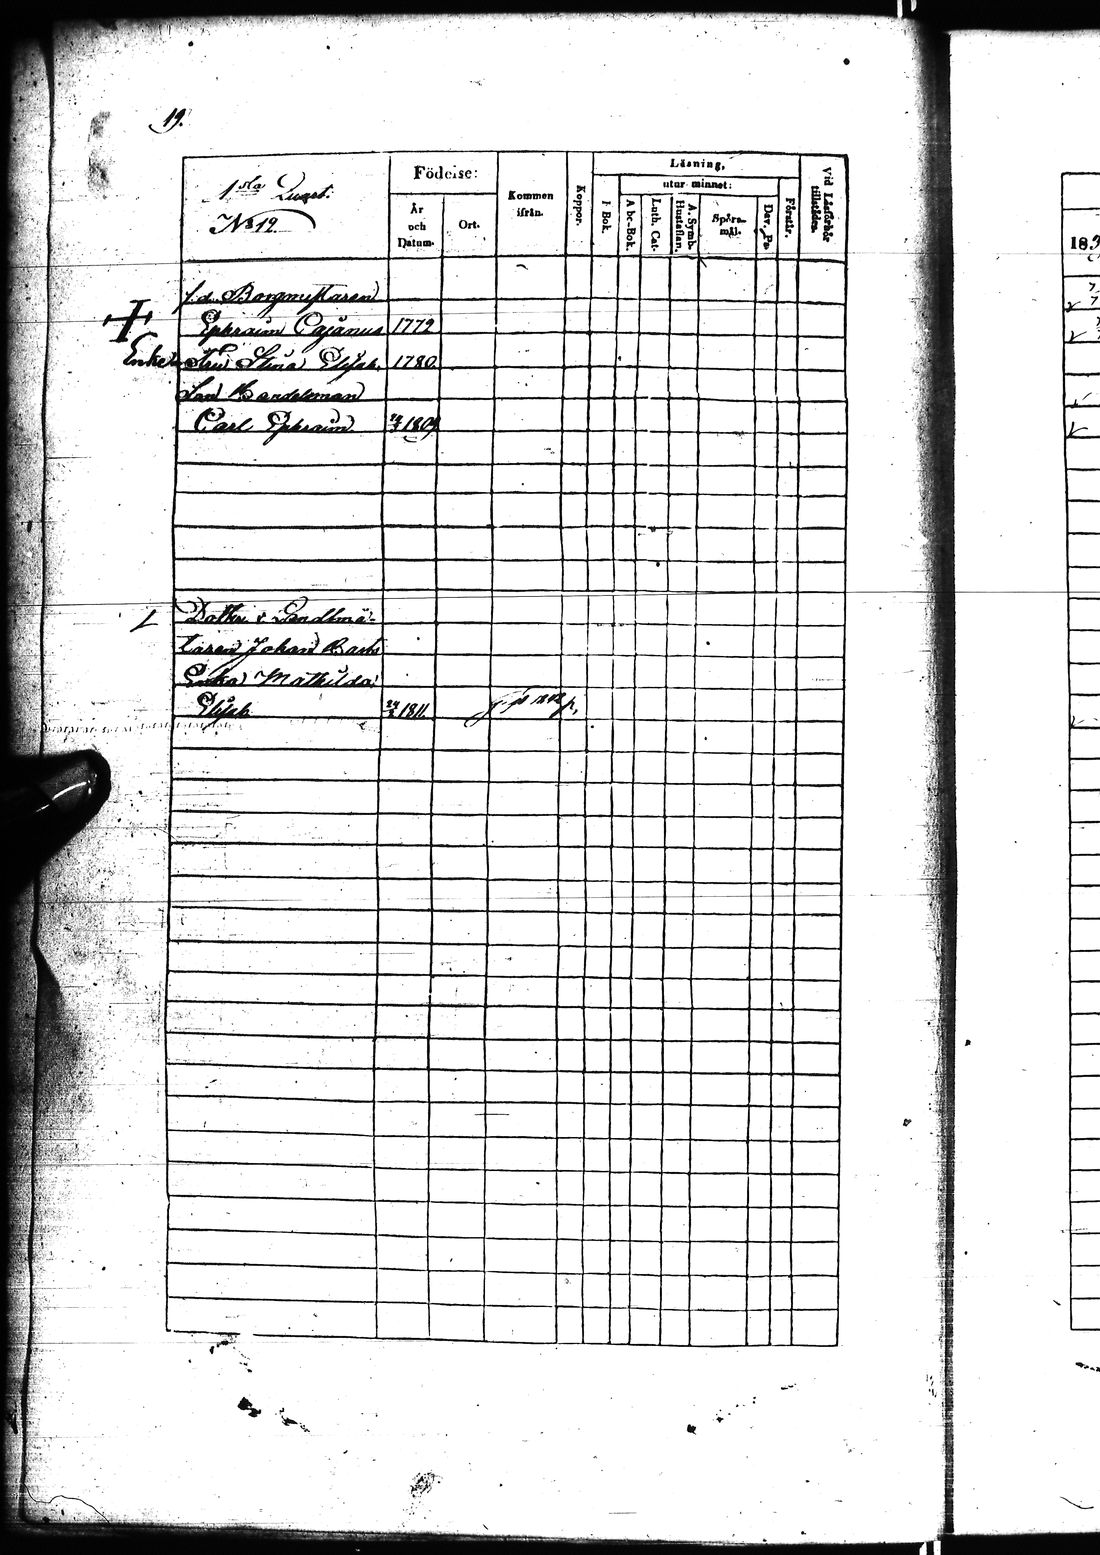 19.
1sta Quart.
No 19
Födelse:
År och Datum.
Ort.
Kommen ifrån.
Koppor.
Läsning,
utur minnet:
I Bok.
Abc-Bok.
Luth. Cat.
A. Symb. Hustaflan.
Spörsmål.
Dav. Ps.
Förstår.
Vid Läsförhör tillstädes.
f.d. Borgmästaren
Ephraim Cajanus 1772
Enkan Fru Stina Elisab. 1780.
Son Handelsman
Carl Ephraim 1809
Dottn v Landtmä-
taren Johan
Enka Mathilda
Elisab. 1811.